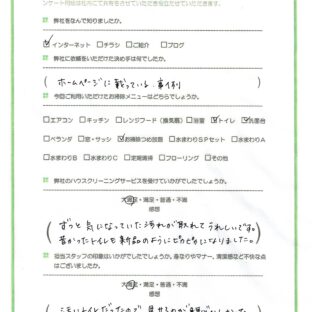 ンケート用紙は社内にて共有させていただきお役立させていただきます。
弊社をなんで知りましたか。
☑インターネット □チラシ □ご紹介 □ブログ
弊社に依頼をいただけた決め手は何でしたか。
( ホームページに載っている事例 )
今回ご利用いただけたお掃除メニューはどちらでしょうか。
□エアコン □キッチン □レンジフード(換気扇) □浴室 ☑トイレ ☑洗面台
□ベランダ □窓・サッシ ☑お掃除つめ放題 □水まわりSPセット □水まわりA
□水まわりB □水まわりC □定期清掃 □フローリング □その他
弊社のハウスクリーニングサービスを受けていかがでしたでしょうか。
大満足・満足・普通・不満
感想
ずっと気になっていた汚れが取れてうれしいです。
昔かったトイレも新品のようにピカピカになりました。
担当スタッフの印象はいかがでしたでしょうか。身なりやマナー、清潔感など不快な点
はございましたか。
大満足・満足・普通・不満
感想